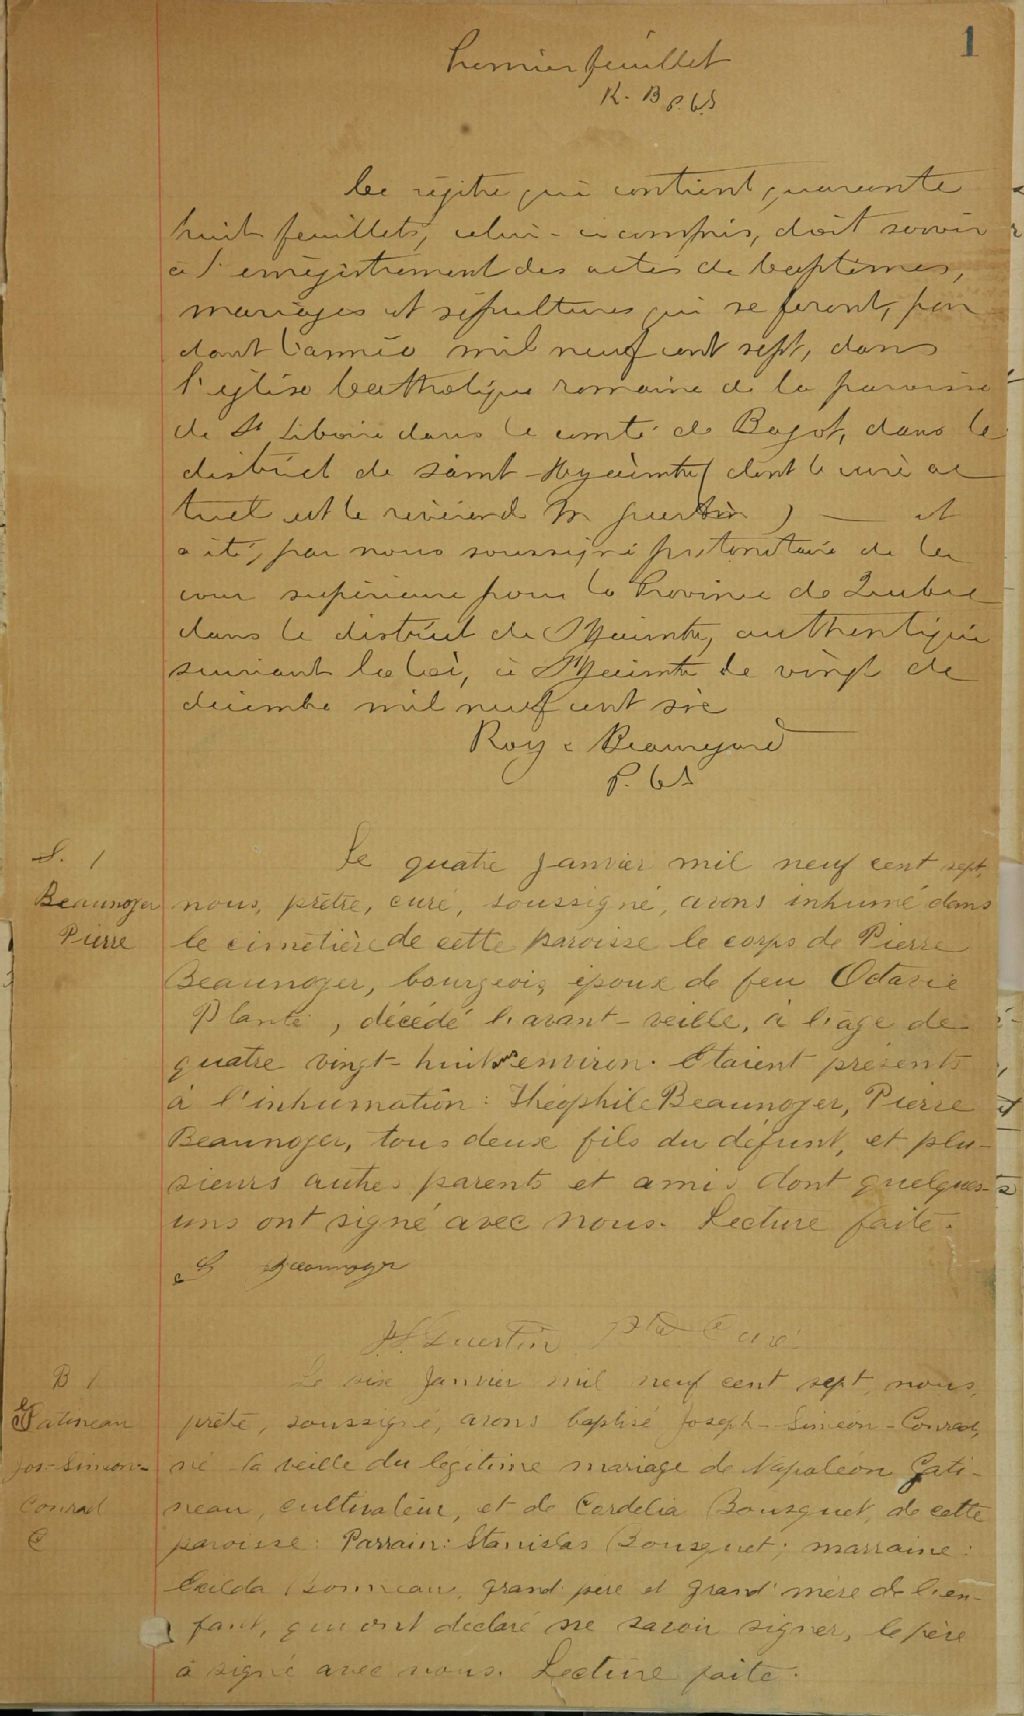 1
Premier feuillet
R. B P.C.S
Ce régitre qui contient quarante
huit feuillets, celui-ci compris, doit servir
à l'enrégistrement des actes de baptêmes,
mariages et sépultures qui se feront, pen
dant l'année mil neuf cent sept, dans
l'église Catholique romaine de la paroisse
de St Liboire dans le comté de Bagot, dans le
district de Saint-Hyacinthe (dont le curé ac
tuel est le révérend M Guertin ) — et
a été, par nous soussigné protonotaire de la
cour supérieure pour la Province de Québec
dans le district de St Hyacinthe, authentiqué
suivant la loi, à St Hyacinthe le vingt de
décembre mil neuf cent six
Roy & Beauregard
P. C. S
S. 1
Beaunoyer
Pierre
Le quatre janvier mil neuf cent sept,
nous, prêtre, curé, soussigné, avons inhumé dans
le cimetière de cette paroisse le corps de Pierre
Beaunoyer, bourgeois, époux de feu Octavie
Plante, décédé l'avant-veille, à l'âge de
quatre vingt-huit ans environ. Etaient présents
à l'inhumation: Théophile Beaunoyer, Pierre
Beaunoyer, tous deux fils du défunt, et plu-
sieurs autres parents et amis dont quelques-
uns ont signé avec nous. Lecture faite.
Beaunoyer
Guertin Ptre Curé
B 1
Gatineau
Jos-Simeon-
Conrad
C
Le six Janvier mil neuf cent sept, nous,
prêtre, soussigné, avons baptisé Joseph-Siméon-Conrad,
né la veille du légitime mariage de Napoléon Gati-
neau, cultivateur, et de Cordelia Bousquet, de cette
paroisse: Parrain: Stanislas Bousquet; marraine:
Exilda Bonneau, grand'père et grand'mère de l'en-
fant, qui ont déclaré ne savoir signer, le père
à signé avec nous. Lecture faite.